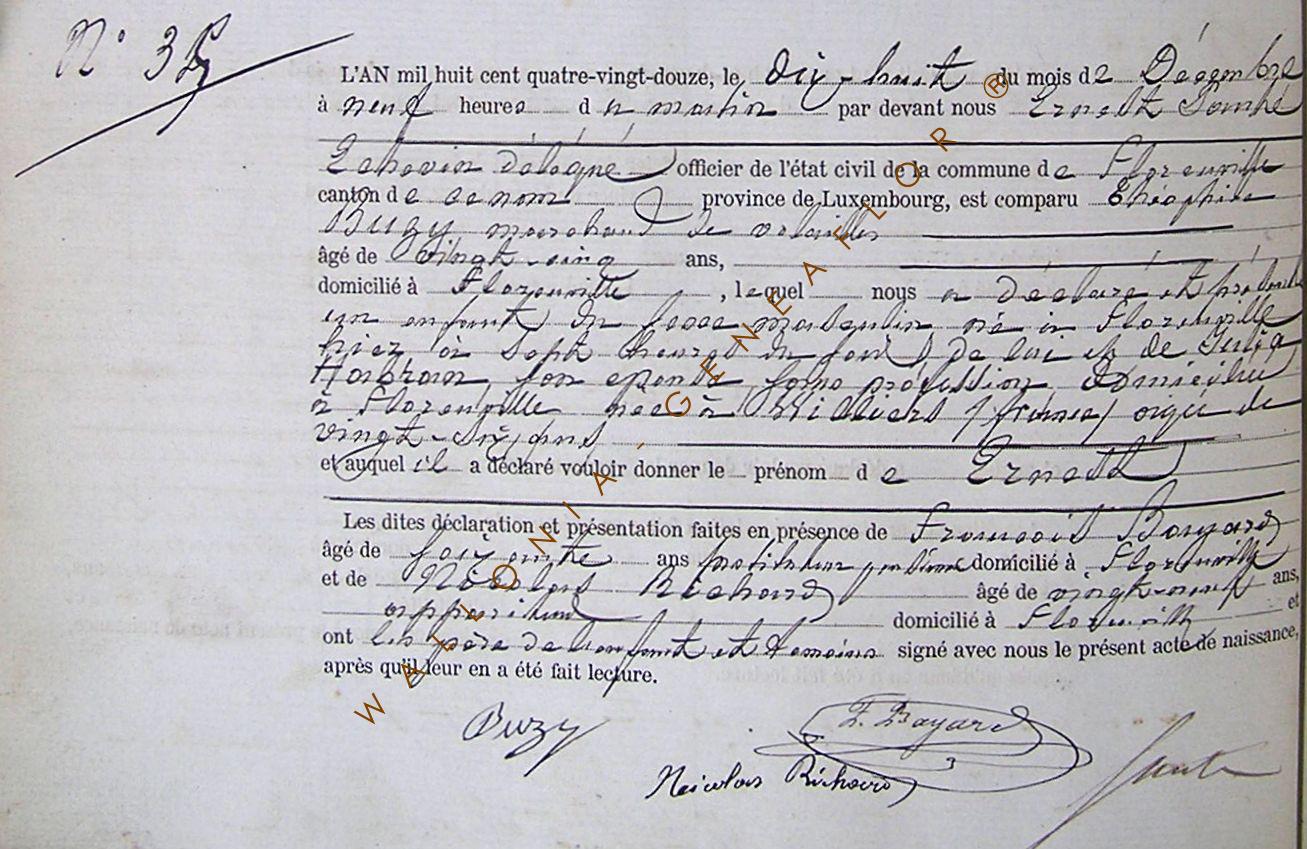 N° 35
L'AN mil huit cent quatre-vingt-douze, le dix-huit du mois de Décembre
à neuf heures du matin par devant nous Ernest
Echevin délégué officier de l'état civil de la commune de Florenville
canton de ce nom province de Luxembourg, est comparu Théophile
Buzy marchand de volailles
âgé de vingt-cinq ans,
domicilié à Florenville, lequel nous a déclaré et présenté
un enfant du sexe masculin né à Florenville
hier à sept heures du soir, de lui et de Julia
son epouse, sans profession domiciliée
à Florenville née à Williers (france) agée de
vingt-six ans
et auquel il a déclaré vouloir donner le prénom de Ernest
Les dites déclaration et présentation faites en présence de François Bayard
âgé de soixante ans instituteur pensionné domicilié à Florenville
et de Nicolas Richard âgé de vingt-neuf ans,
appariteur domicilié à Florenville et
ont les père de l'enfant et temoins signé avec nous le présent acte de naissance,
après qu'il leur en a été fait lecture.
Buzy
F. Bayard
Nicolas Richard
WALLONIA - GENEAFLOR ®